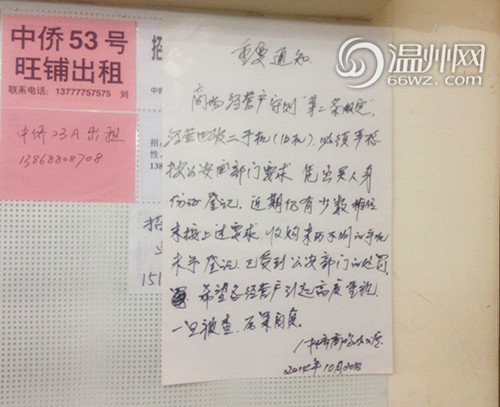 中侨53号
旺铺出租
联系电话：13777757575 刘
中侨23A出租
13868808708
招
中侨
招
性，
138
招
151
温州网
66WZ.COM
重要通知
商场经营户守则"第二条规定"，
经营回收二手机（旧机），必须严格
按公安部门要求，凭出买人身
份证登记，近期仍有少数摊位
未按上述要求，收购来历不明的手机
未予登记，已受到公安部门的处罚，
希望各经营户引起高度重视，
一旦被查，后果自负。
2014年10月20日